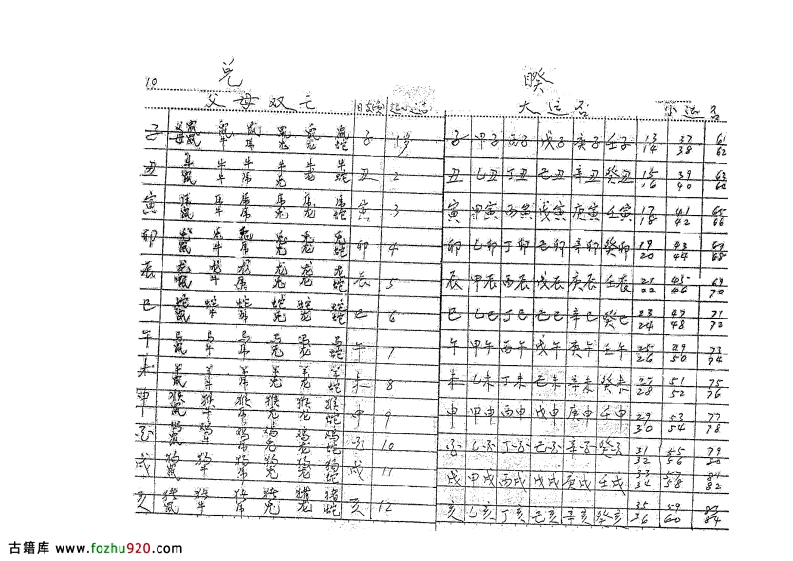 10 兑 睽
父母双亡 大运否 小运否
子 父鼠 鼠 鼠 鼠 鼠 鼠 子 1岁 子 甲子 丙子 戊子 庚子 壬子 13 37 61
母鼠 牛 虎 兔 龙 蛇 14 38 62
丑 牛 牛 牛 牛 牛 牛 丑 2 丑 乙丑 丁丑 己丑 辛丑 癸丑 15 39 63
鼠 牛 虎 兔 龙 蛇 16 40 64
寅 虎 虎 虎 虎 虎 虎 寅 3 寅 甲寅 丙寅 戊寅 庚寅 壬寅 17 41 65
鼠 牛 虎 兔 龙 蛇 18 42 66
卯 兔 兔 兔 兔 兔 兔 卯 4 卯 乙卯 丁卯 己卯 辛卯 癸卯 19 43 67
鼠 牛 虎 兔 龙 蛇 20 44 68
辰 龙 龙 龙 龙 龙 龙 辰 5 辰 甲辰 丙辰 戊辰 庚辰 壬辰 21 45 69
鼠 牛 虎 兔 龙 蛇 22 46 70
巳 蛇 蛇 蛇 蛇 蛇 蛇 巳 6 巳 乙巳 丁巳 己巳 辛巳 癸巳 23 47 71
鼠 牛 虎 兔 龙 蛇 24 48 72
午 马 马 马 马 马 午 7 午 甲午 丙午 戊午 庚午 壬午 25 49 73
鼠 牛 虎 兔 龙 蛇 26 50 74
未 羊 羊 羊 羊 羊 羊 未 8 未 乙未 丁未 己未 辛未 癸未 27 51 75
鼠 牛 虎 兔 龙 蛇 28 52 76
申 猴 猴 猴 猴 猴 猴 申 9 申 甲申 丙申 戊申 庚申 壬申 29 53 77
鼠 牛 虎 兔 龙 蛇 30 54 78
酉 鸡 鸡 鸡 鸡 鸡 鸡 酉 10 酉 乙酉 丁酉 己酉 辛酉 癸酉 31 55 79
鼠 牛 虎 兔 龙 蛇 32 56 80
戌 狗 狗 狗 狗 狗 狗 戌 11 戌 甲戌 丙戌 戊戌 庚戌 壬戌 33 57 81
鼠 牛 虎 兔 龙 蛇 34 58 82
亥 猪 猪 猪 猪 猪 猪 亥 12 亥 乙亥 丁亥 己亥 辛亥 癸亥 35 59 83
鼠 牛 虎 兔 龙 蛇 36 60 84
古籍库 www.fozhu920.com